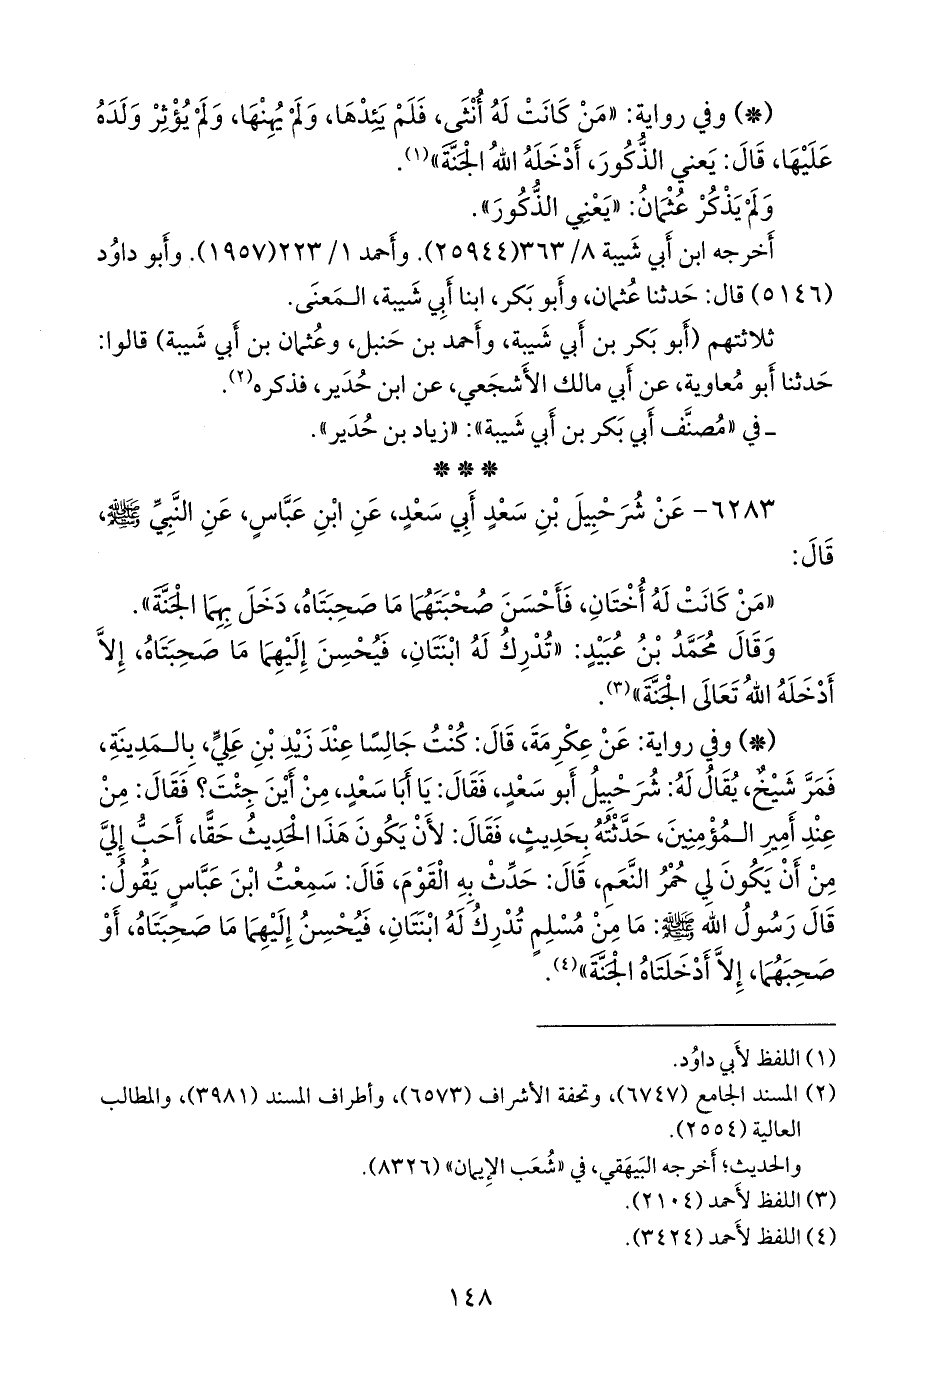 (*) وفي رواية: «مَنْ كَانَتْ لَهُ أُنْثَى، فَلَمْ يَئِدْهَا، وَلَمْ يُهِنْهَا، وَلَمْ يُؤْثِرْ وَلَدَهُ
عَلَيْهَا، قَالَ: يَعني الذُّكُورَ، أَدْخَلَهُ اللهُ الْجَنَّةَ»(١).
وَلَمْ يَذْكُرْ عُثْمَانُ: «يَعْنِي الذُّكُورَ».
أخرجه ابن أبي شَيبة ٨/ ٣٦٣(٢٥٩٤٤). وأَحمد ١/ ٢٢٣(١٩٥٧). وأَبو داوُد
(٥١٤٦) قال: حَدثنا عُثمان، وأَبو بَكر، ابنا أَبي شَيبة، الـمَعنَى.
ثلاثتهم (أَبو بَكر بن أَبي شَيبة، وأَحمد بن حَنبل، وعُثمان بن أَبي شَيبة) قالوا:
حَدثنا أَبو مُعاوية، عن أَبي مالك الأَشجَعي، عن ابن حُدَير، فذكره(٢).
ـ في «مُصنَّف أَبي بَكر بن أَبي شَيبة»: «زياد بن حُدَير».
* * *
٦٢٨٣- عَنْ شُرَحْبِيلَ بْنِ سَعْدٍ أَبِي سَعْدٍ، عَنِ ابْنِ عَبَّاسٍ، عَنِ النَّبِيِّ ﷺ،
قَالَ:
«مَنْ كَانَتْ لَهُ أُخْتَانِ، فَأَحْسَنَ صُحْبَتَهُمَا مَا صَحِبَتَاهُ، دَخَلَ بِهِمَا الْجَنَّةَ».
وَقَالَ مُحَمَّدُ بْنُ عُبَيْدٍ: «تُدْرِكُ لَهُ ابْنَتَانِ، فَيُحْسِنَ إِلَيْهِمَا مَا صَحِبَتَاهُ، إِلاَّ
أَدْخَلَهُ اللهُ تَعَالَى الْجَنَّةَ»(٣).
(*) وفي رواية: عَنْ عِكْرِمَةَ، قَالَ: كُنْتُ جَالِسًا عِنْدَ زَيْدِ بْنِ عَلِيٍّ، بِالـمَدِينَةِ،
فَمَرَّ شَيْخٌ، يُقَالُ لَهُ: شُرَحْبِيلُ أَبو سَعْدٍ، فَقَالَ: يَا أَبَا سَعْدٍ، مِنْ أَيْنَ جِئْتَ؟ فَقَالَ: مِنْ
عِنْدِ أَمِيرِ الـمُؤْمِنِينَ، حَدَّثْتُهُ بِحَدِيثٍ، فَقَالَ: لأَنْ يَكُونَ هَذَا الْحَدِيثُ حَقًّا، أَحَبُّ إِلَيَّ
مِنْ أَنْ يَكُونَ لِي حُمْرُ النَّعَمِ، قَالَ: حَدِّثْ بِهِ الْقَوْمَ، قَالَ: سَمِعْتُ ابْنَ عَبَّاسٍ يَقُولُ:
قَالَ رَسُولُ الله ﷺ: مَا مِنْ مُسْلِمٍ تُدْرِكُ لَهُ ابْنَتَانِ، فَيُحْسِنُ إِلَيْهِمَا مَا صَحِبَتَاهُ، أَوْ
صَحِبَهُمَا، إِلاَّ أَدْخَلَتَاهُ الْجَنَّةَ»(٤).
(١) اللفظ لأَبي داوُد.
(٢) المسند الجامع (٦٧٤٧)، وتحفة الأشراف (٦٥٧٣)، وأطراف المسند (٣٩٨١)، والمطالب
العالية (٢٥٥٤).
والحديث؛ أخرجه البَيهَقي، في «شُعَب الإيمان» (٨٣٢٦).
(٣) اللفظ لأَحمد (٢١٠٤).
(٤) اللفظ لأَحمد (٣٤٢٤).
١٤٨